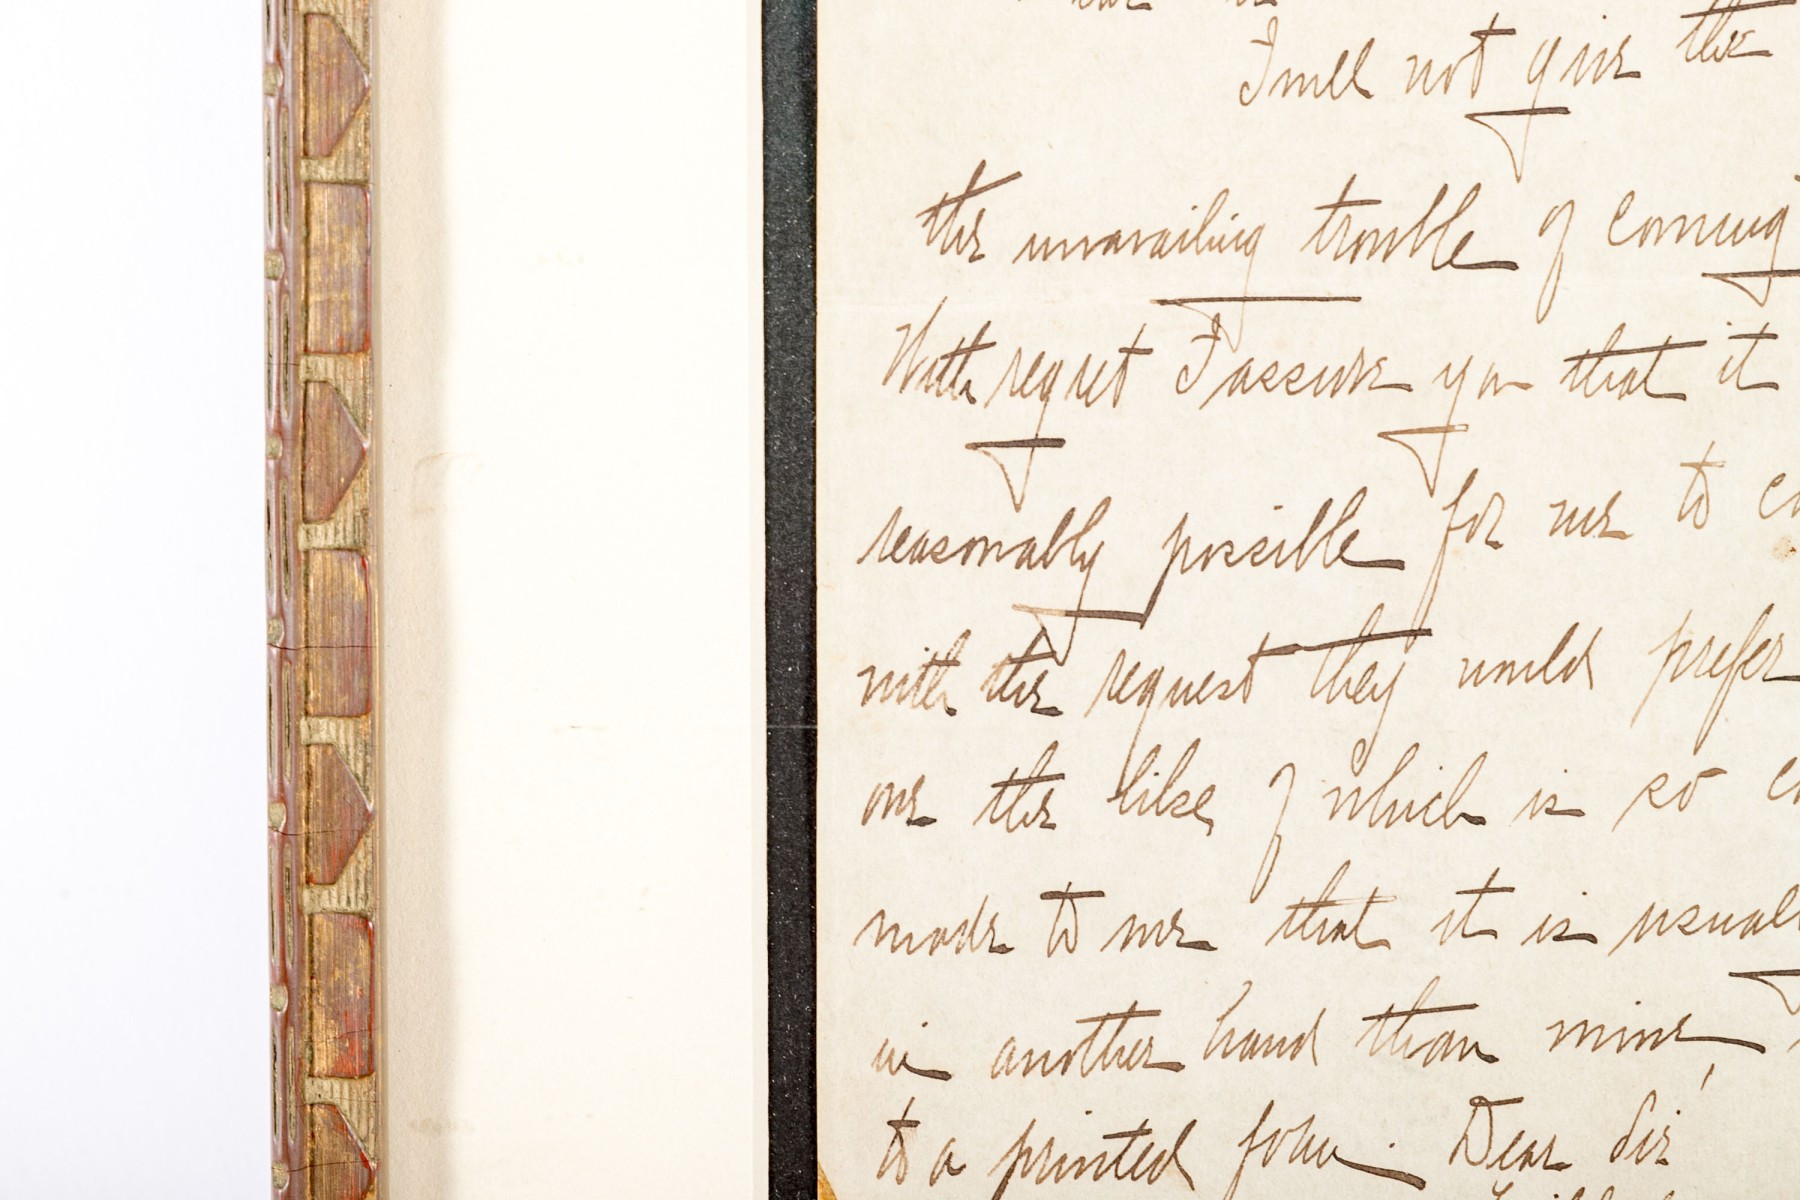 I will not give the
the unavailing trouble of coming
With regret I assure you that it
reasonably possible for me to
with the request they would prefer
one the like of which is so
made to me that it is usual
in another hand than mine,
to a printed form. Dear Sir